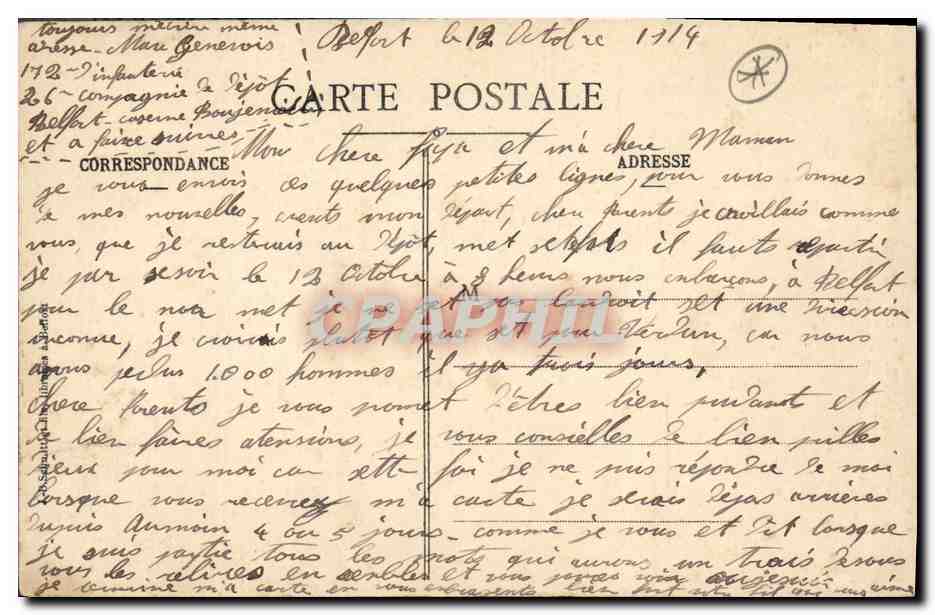 toujours mécrire même
adresse - Marc Genevois
172e d'infanterie
26e compagnie de dépôt
Belfort - caserne
et a faire suivre
Belfort le 12 Octobre 1914
CARTE POSTALE
CORRESPONDANCE
ADRESSE
Mon chere papa et m'a chere Maman
je vous envois ces quelques petites lignes, pour vous donnes
de mes nouvelles, avents mon départ, chere Parents je croillais comme
vous, que je resterais au dépôt, met il fauts repartir
je par se soir le 12 Octobre à 8 heures nous enbarçons, à Belfort
pour le met je ne endroit set une direction
inconnue, je croirais plutot que set pour Verdun, car nous
avons perdus 1.000 hommes il y a trois jours,
Chere Parents je vous promet d'êtres bien prudant et
de bien faires atensions, je vous conseilles de bien prilles
dieux pour moi car sette foi je ne puis répondre de moi
lorsque vous recevrez m'a carte je serais déjas arrières
dupuis Aumoin 4 ou 5 jours - comme je vous et dit lorsque
je suis partie tous les mots qui aurons un trais desous
vous les relires en senbles et vous
je termine m'a carte en vous enbrassents bien fort votre fils qui vous aime
CPAPHIL